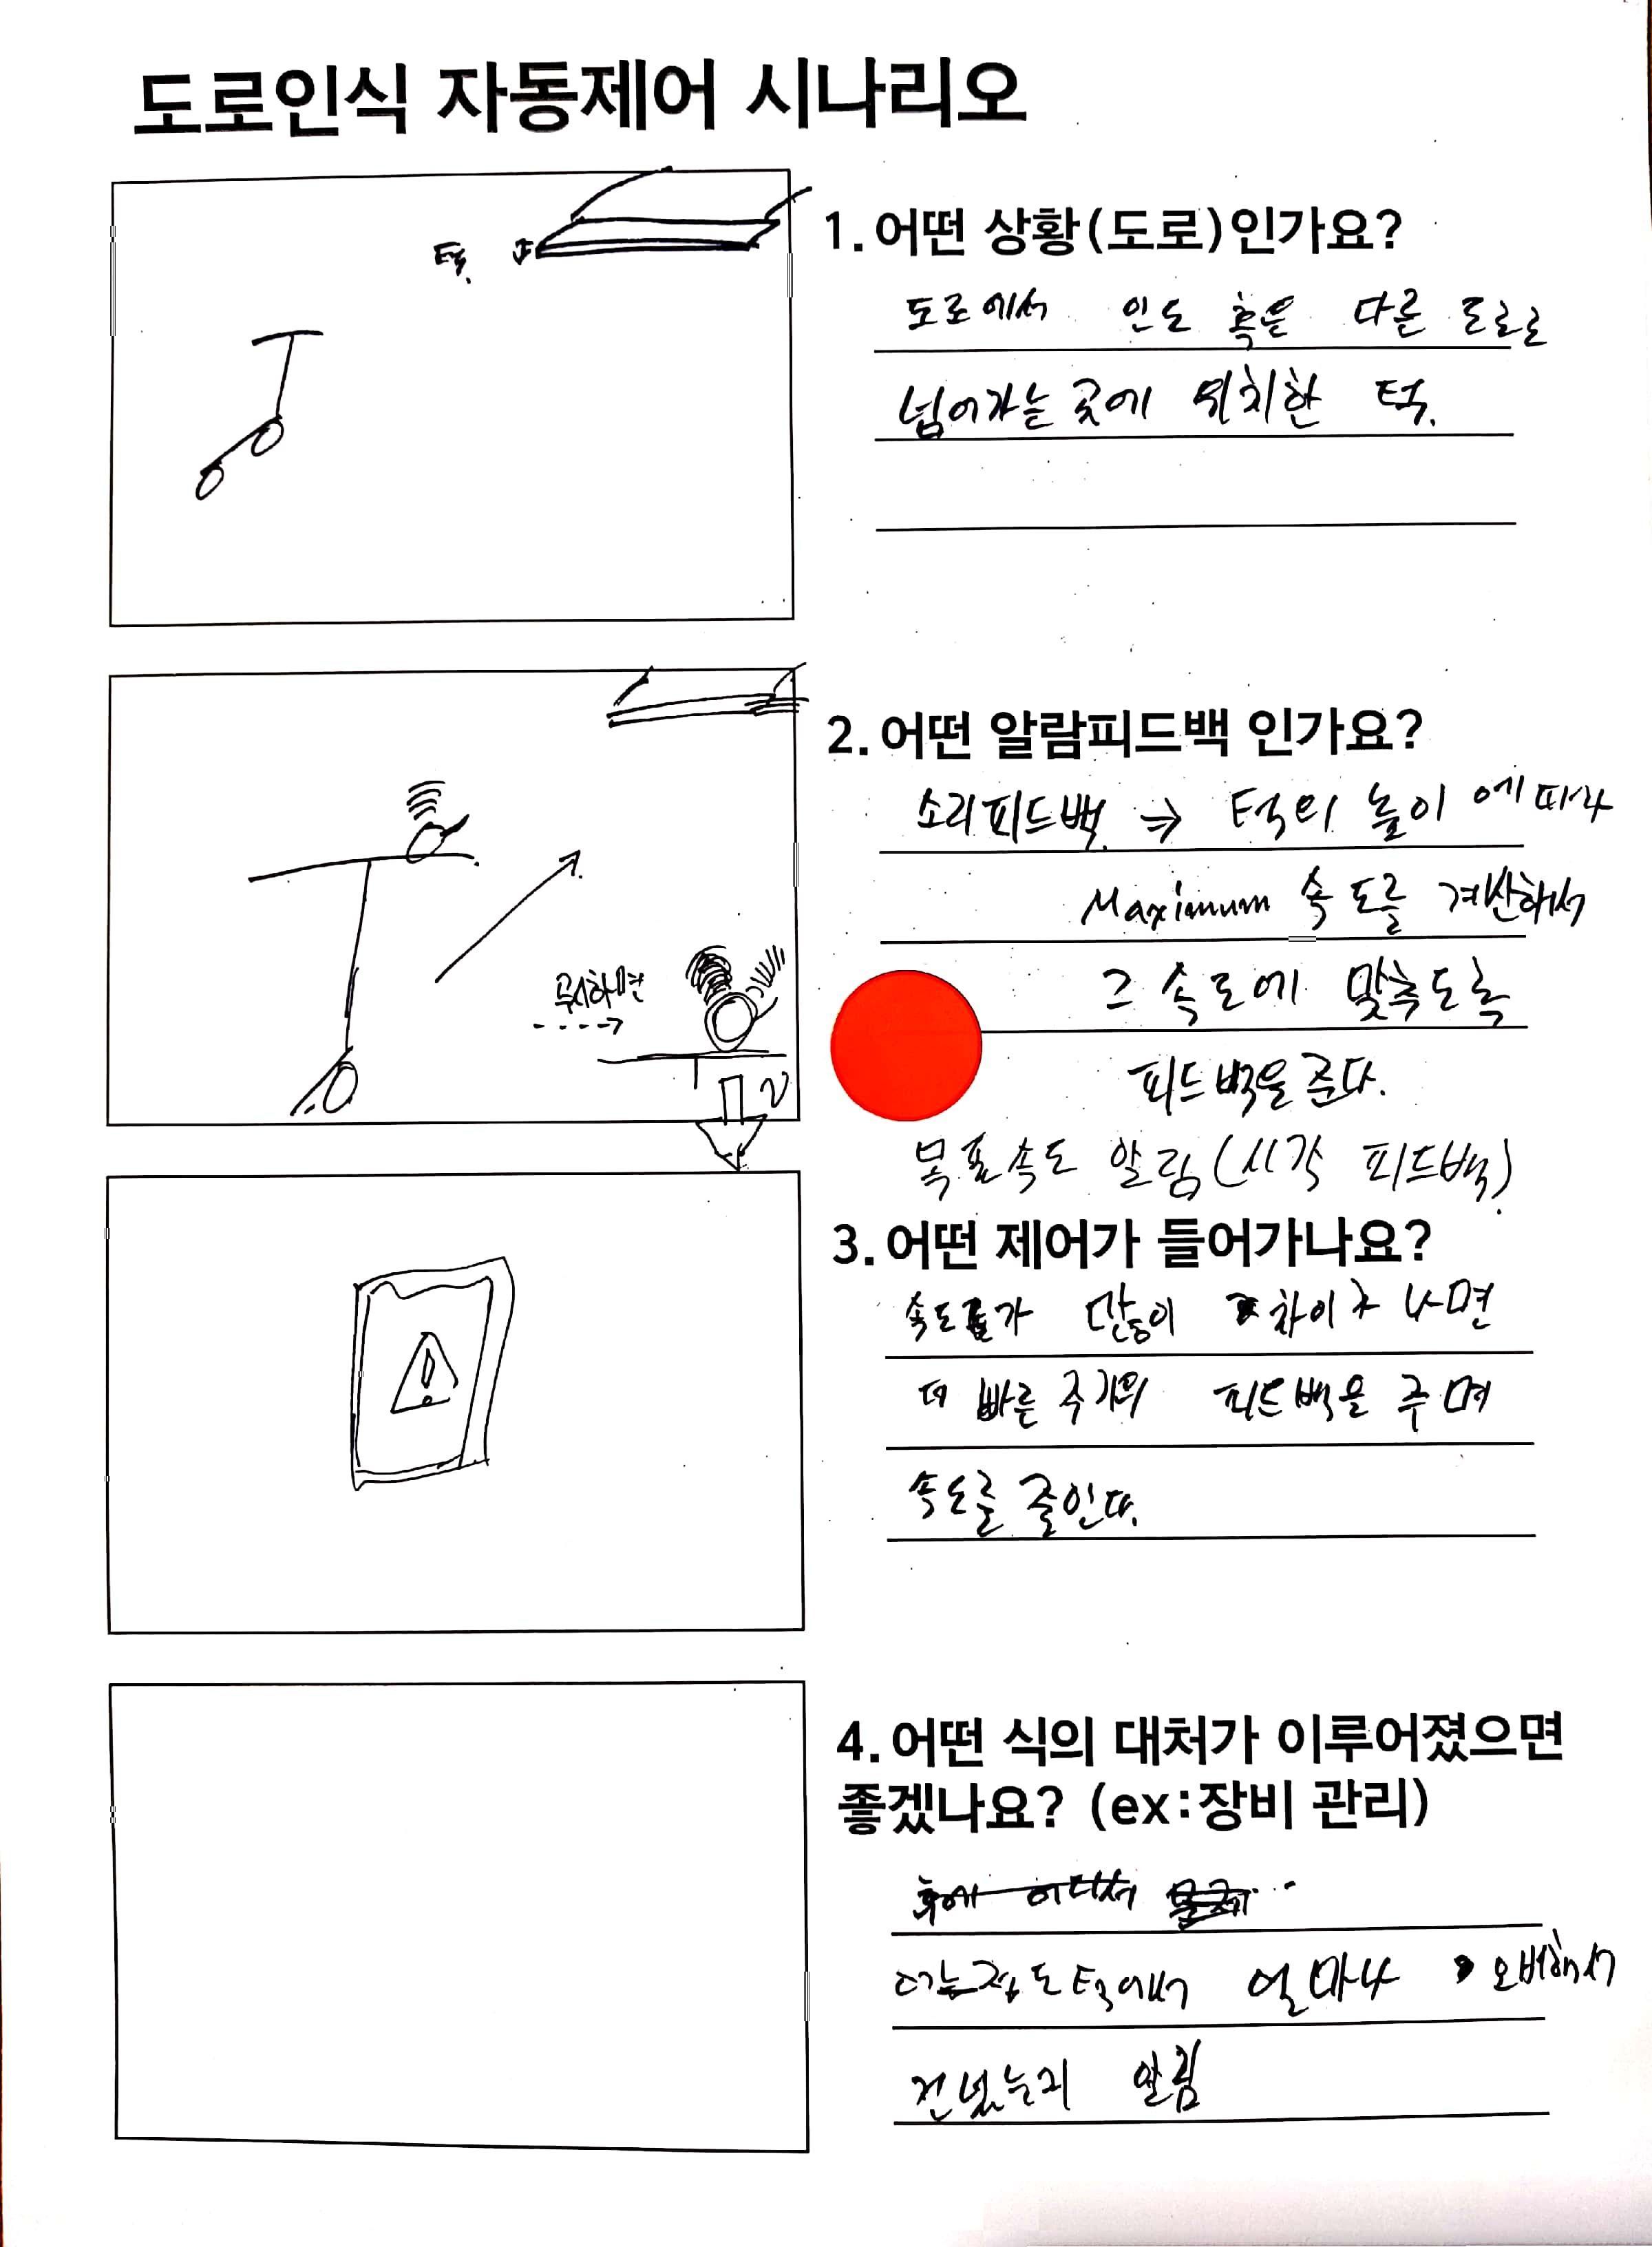 도로인식 자동제어 시나리오
턱.
1. 어떤 상황(도로)인가요?
도로에서 인도 혹은 다른 도로로
넘어가는 곳에 위치한 턱.
2. 어떤 알람피드백 인가요?
소리피드백 ⇒ 턱의 높이에 따라
Maximum 속도를 계산해서
그 속도에 맞추도록
피드백을 준다.
목표속도 알림(시각 피드백)
무시하면
3. 어떤 제어가 들어가나요?
속도가 많이 차이가 나면
더 빠른 주기의 피드백을 주며
속도를 줄인다.
4. 어떤 식의 대처가 이루어졌으면
좋겠나요? (ex:장비 관리)
턱에서 얼마나 오버해서
건넜는지 알림